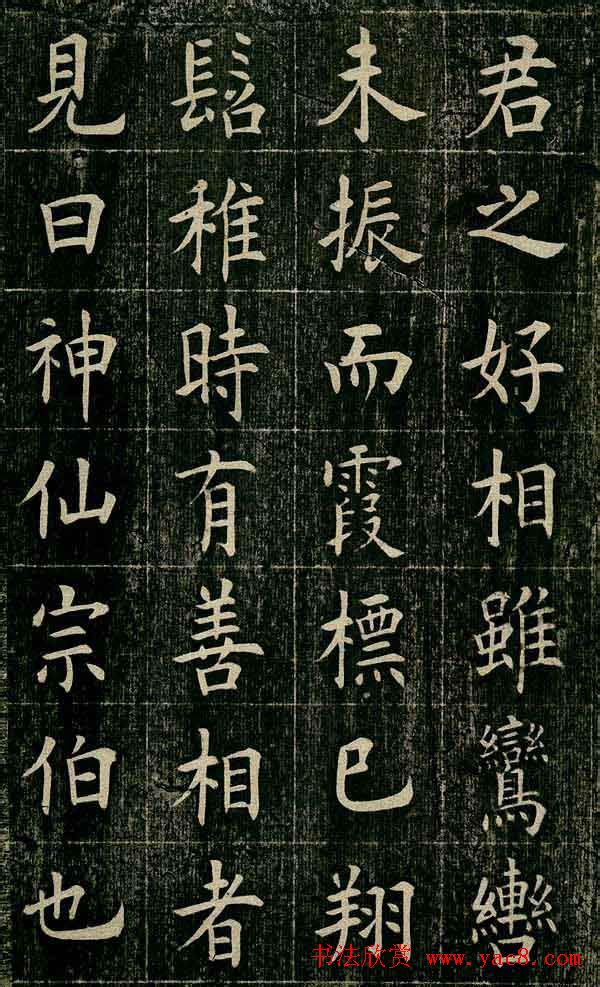 君之好相雖鸞轡
未振而霞標已翔
髫稚時有善相者
見曰神仙宗伯也
书法欣赏 www.yac8.com